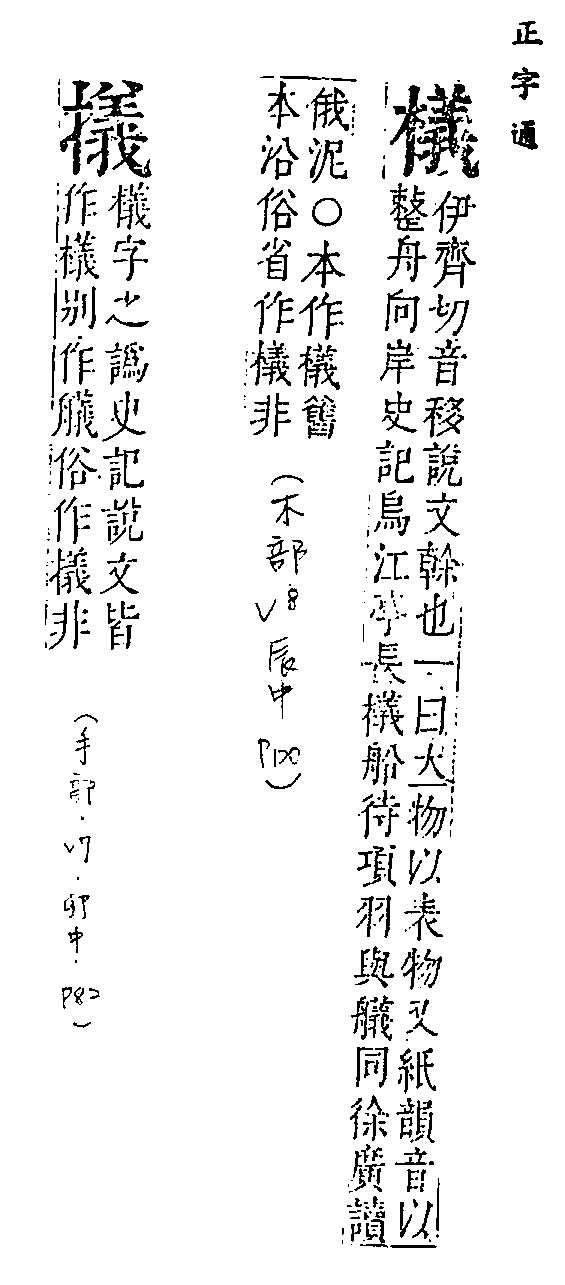 正字通
檥
伊齊切音移說文榦也一曰大物以表物又紙韻音以
整舟向岸史記烏江亭長檥船待項羽與艤同徐廣讀
俄泥○本作檥舊
本沿俗省作檥非
(木部 V8 辰中 P120)
㩘
檥字之譌史記說文皆
作檥別作艤俗作㩘非
(手部.V7.卯中.P82)